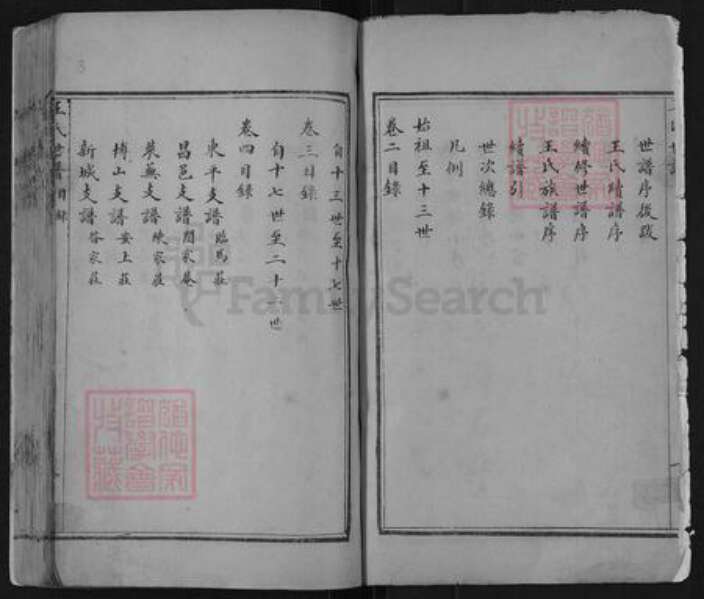 世譜序後跋
王氏續譜序
續修世譜序
王氏族譜序
續譜引
世次總錄
凡例
卷二目錄
始祖至十三世
自十三世至十七世
卷三目錄
自十七世至二十一世
卷四目錄
東平支譜 臨馬莊
昌邑支譜 閻家菴
萊蕪支譜 陳家莊
博山支譜 安上莊
新城支譜 谷家莊
王氏世譜目錄
FamilySearch
3